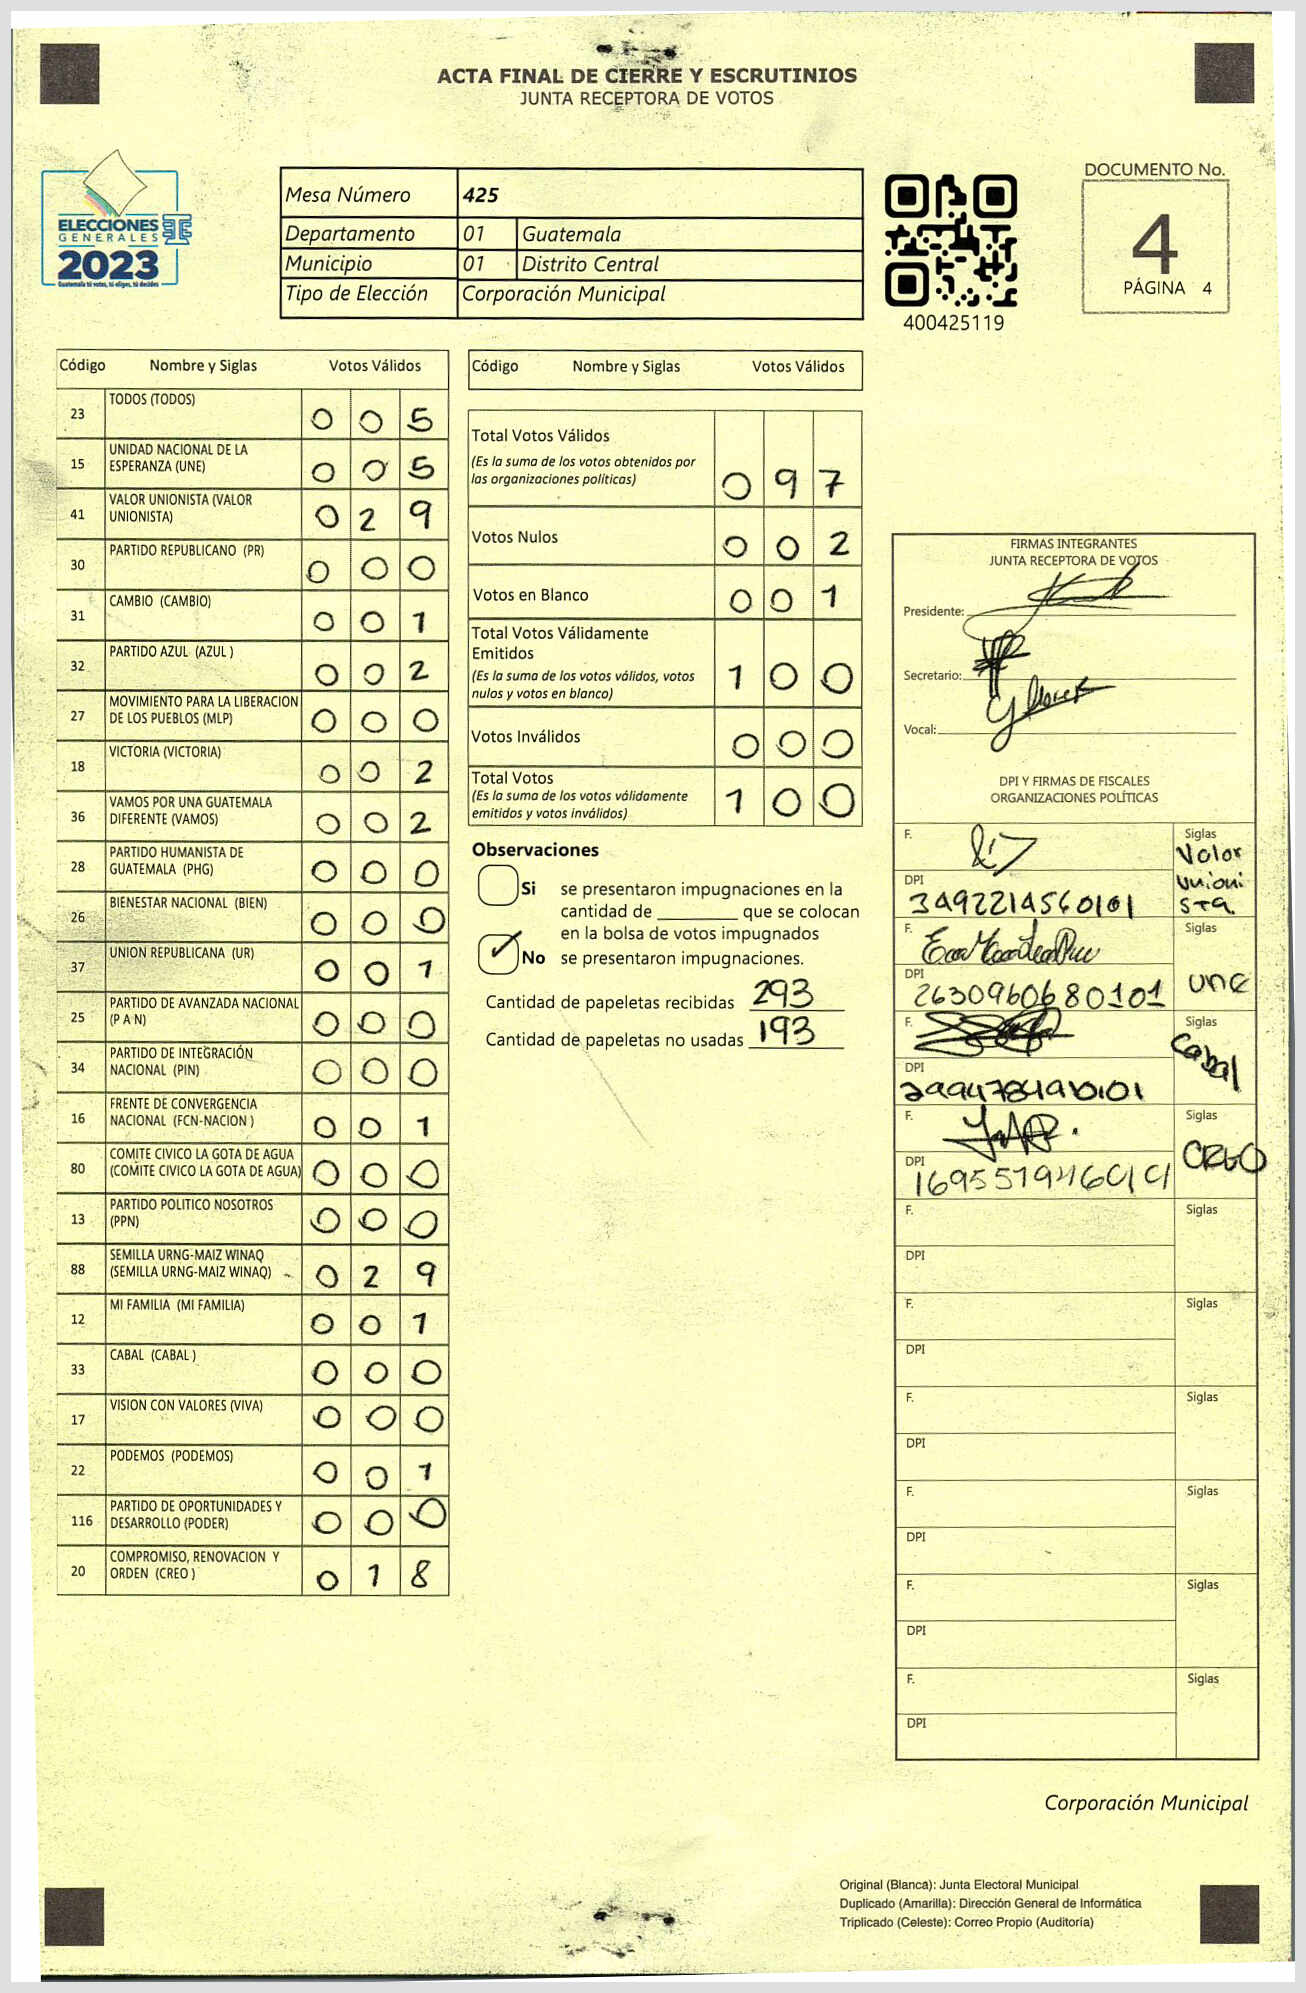 ACTA FINAL DE CIERRE Y ESCRUTINIOS
JUNTA RECEPTORA DE VOTOS
ELECCIONES
GENERALES
2023
Guatemala tú votas, tú eliges, tú decides
Mesa Número 425
Departamento 01 Guatemala
Municipio 01 Distrito Central
Tipo de Elección Corporación Municipal
400425119
DOCUMENTO No.
4
PÁGINA 4
Código Nombre y Siglas Votos Válidos
23 TODOS (TODOS) 0 0 5
15 UNIDAD NACIONAL DE LA
ESPERANZA (UNE) 0 0 5
41 VALOR UNIONISTA (VALOR
UNIONISTA) 0 2 9
30 PARTIDO REPUBLICANO (PR) 0 0 0
31 CAMBIO (CAMBIO) 0 0 1
32 PARTIDO AZUL (AZUL ) 0 0 2
27 MOVIMIENTO PARA LA LIBERACION
DE LOS PUEBLOS (MLP) 0 0 0
18 VICTORIA (VICTORIA) 0 0 2
36 VAMOS POR UNA GUATEMALA
DIFERENTE (VAMOS) 0 0 2
28 PARTIDO HUMANISTA DE
GUATEMALA (PHG) 0 0 0
26 BIENESTAR NACIONAL (BIEN) 0 0 0
37 UNION REPUBLICANA (UR) 0 0 1
25 PARTIDO DE AVANZADA NACIONAL
(P A N) 0 0 0
34 PARTIDO DE INTEGRACIÓN
NACIONAL (PIN) 0 0 0
16 FRENTE DE CONVERGENCIA
NACIONAL (FCN-NACION ) 0 0 1
80 COMITE CIVICO LA GOTA DE AGUA
(COMITE CIVICO LA GOTA DE AGUA) 0 0 0
13 PARTIDO POLITICO NOSOTROS
(PPN) 0 0 0
88 SEMILLA URNG-MAIZ WINAQ
(SEMILLA URNG-MAIZ WINAQ) 0 2 9
12 MI FAMILIA (MI FAMILIA) 0 0 1
33 CABAL (CABAL ) 0 0 0
17 VISION CON VALORES (VIVA) 0 0 0
22 PODEMOS (PODEMOS) 0 0 1
116 PARTIDO DE OPORTUNIDADES Y
DESARROLLO (PODER) 0 0 0
20 COMPROMISO, RENOVACION Y
ORDEN (CREO ) 0 1 8
Código Nombre y Siglas Votos Válidos
Total Votos Válidos
(Es la suma de los votos obtenidos por
las organizaciones políticas) 0 9 7
Votos Nulos 0 0 2
Votos en Blanco 0 0 1
Total Votos Válidamente
Emitidos
(Es la suma de los votos válidos, votos
nulos y votos en blanco) 1 0 0
Votos Inválidos 0 0 0
Total Votos
(Es la suma de los votos válidamente
emitidos y votos inválidos) 1 0 0
Observaciones
Si se presentaron impugnaciones en la
cantidad de ________ que se colocan
en la bolsa de votos impugnados
No se presentaron impugnaciones.
Cantidad de papeletas recibidas 293
Cantidad de papeletas no usadas 193
FIRMAS INTEGRANTES
JUNTA RECEPTORA DE VOTOS
Presidente:
Secretario:
Vocal:
DPI Y FIRMAS DE FISCALES
ORGANIZACIONES POLÍTICAS
F. Siglas
Valor
Unioni
sta.
DPI
3492214560101
F. Siglas
une
DPI
2630960680101
F. Siglas
Cabal
DPI
F. Siglas
CREO
DPI
F. Siglas
DPI
F. Siglas
DPI
F. Siglas
DPI
F. Siglas
DPI
F. Siglas
DPI
F. Siglas
DPI
Corporación Municipal
Original (Blanca): Junta Electoral Municipal
Duplicado (Amarilla): Dirección General de Informática
Triplicado (Celeste): Correo Propio (Auditoría)